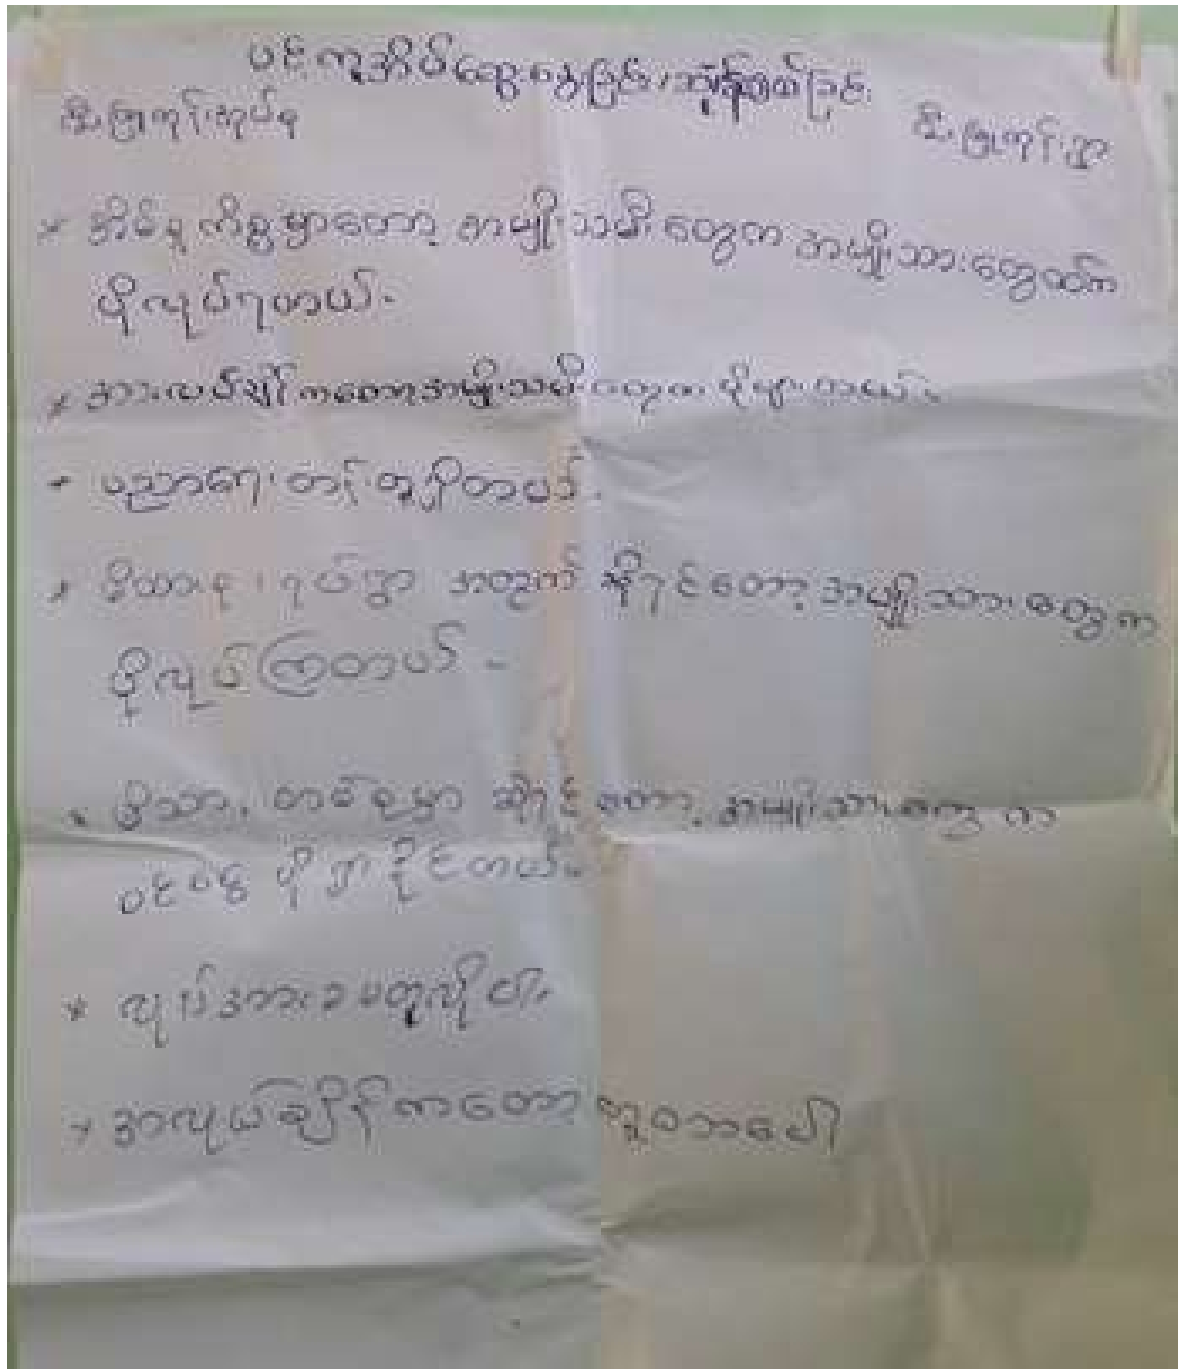 ပင်ကူအိမ်ဆွေးနွေးခြင်း၊ သုံးသပ်ခြင်း
ဦးဖြူကုန်းအုပ်စု
ဦးဖြူကုန်းရွာ
* အိမ်မှုကိစ္စမှာတော့ အမျိုးသမီးတွေက အမျိုးသားတွေထက်
ပိုလုပ်ရတယ်-
* အားလပ်ချိန်ကတော့အမျိုးသမီးတွေက ပိုများတယ်-
- ပညာရေးတန်းတူရှိတယ်-
* မိသားစု၊ ရပ်ရွာ အတွက် ဆိုရင်တော့ အမျိုးသားတွေက
ပိုလုပ်ကြတယ်-
* မိသားတစ်စုမှာ ဆိုရင်တော့ အမျိုးသားတွေက
ဝင်ငွေ ပိုရှာနိုင်တယ်-
* လုပ်အားခမတူလို့ပါ-
* အလုပ်ချိန်ကတော့ တူတာပေါ့